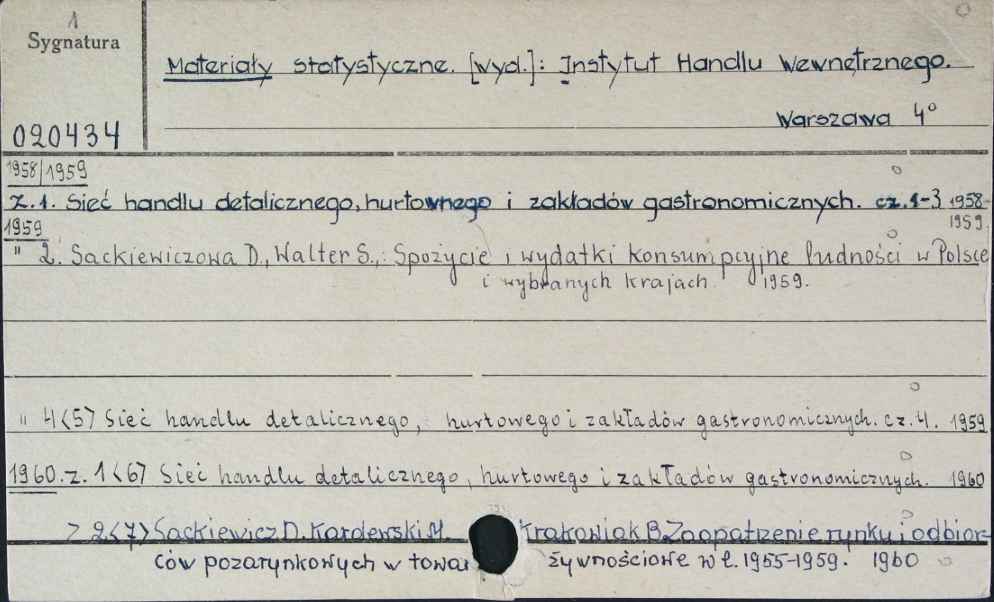 1
Sygnatura
Materiały statystyczne. [wyd.]: Instytut Handlu Wewnętrznego.
Warszawa 4°
020434
1958/1959
z.1. Sieć handlu detalicznego, hurtownego i zakładów gastronomicznych. cz.1-3 1958-
1959
1959
" 2. Sackiewiczowa D., Walter S.,: Spożycie i wydatki konsumpcyjne ludności w Polsce
i wybranych krajach. 1959.
" 4<5> Sieć handlu detalicznego, hurtowego i zakładów gastronomicznych. cz. 4. 1959
1960. z. 1<6> Sieć handlu detalicznego, hurtowego i zakładów gastronomicznych. 1960
2<7> Sackiewicz D. Kordewski M. Krakowiak B. Zaopatrzenie rynku i odbior-
ców pozarynkowych w towa żywnościowe w l. 1955-1959. 1960